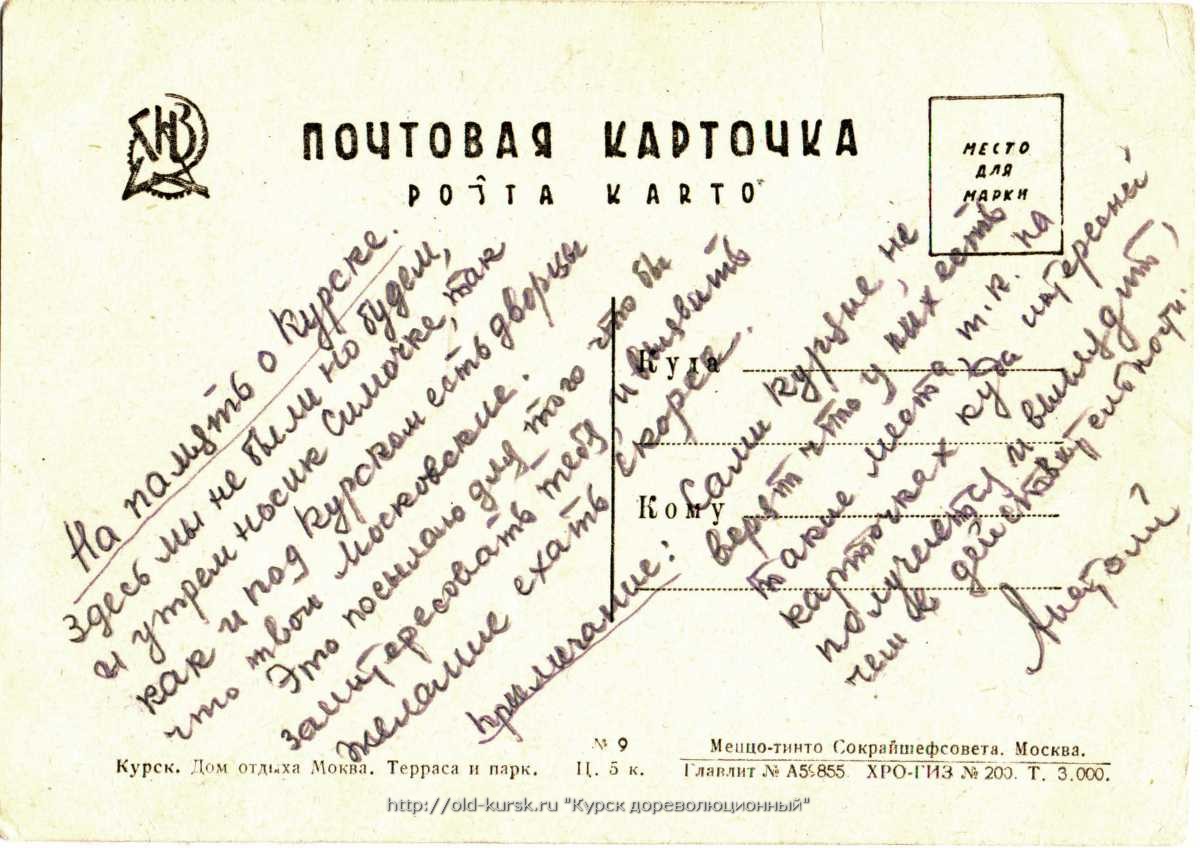 ПОЧТОВАЯ КАРТОЧКА
POŜTA KARTO
МЕСТО
ДЛЯ
МАРКИ
На память о Курске.
Здесь мы не были но будем,
и утрем носик Симочке, так
как и под Курском есть дворцы
что твои московские.
Это посылаю для того что бы
заинтересовать тебя и вызвать
желание ехать скорее.
Примечание: Сами куряне не
верят что у них есть
такие места т.к. на
карточках куда интересней
получается и выглядит,
чем в действительности.
Анатолий
Куда
Кому
№ 9
Курск. Дом отдыха Моква. Терраса и парк. Ц. 5 к.
Меццо-тинто Сокрайшефсовета. Москва.
Главлит № ХРО-ГИЗ № 200. Т. 3.000.
http://old-kursk.ru "Курск дореволюционный"